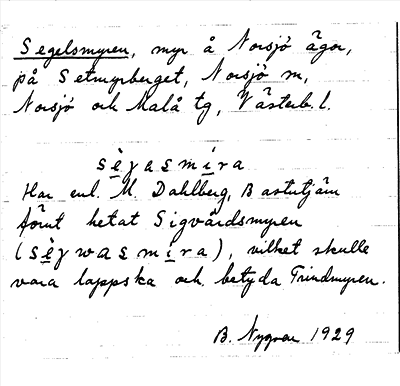 Segelsmyren, myr å Norsjö ägor,
på Setmyrberget, Norsjö sn,
Norsjö och Malå tg, Västerb. l.
sèɣasmira
Har enl. M. Dahlberg, Bastutjärn
förut hetat Sigvårdsmyren
(sèɣwasmira), vilket skulle
vara lappska och betyda Trindmyren.
B. Nygren 1929